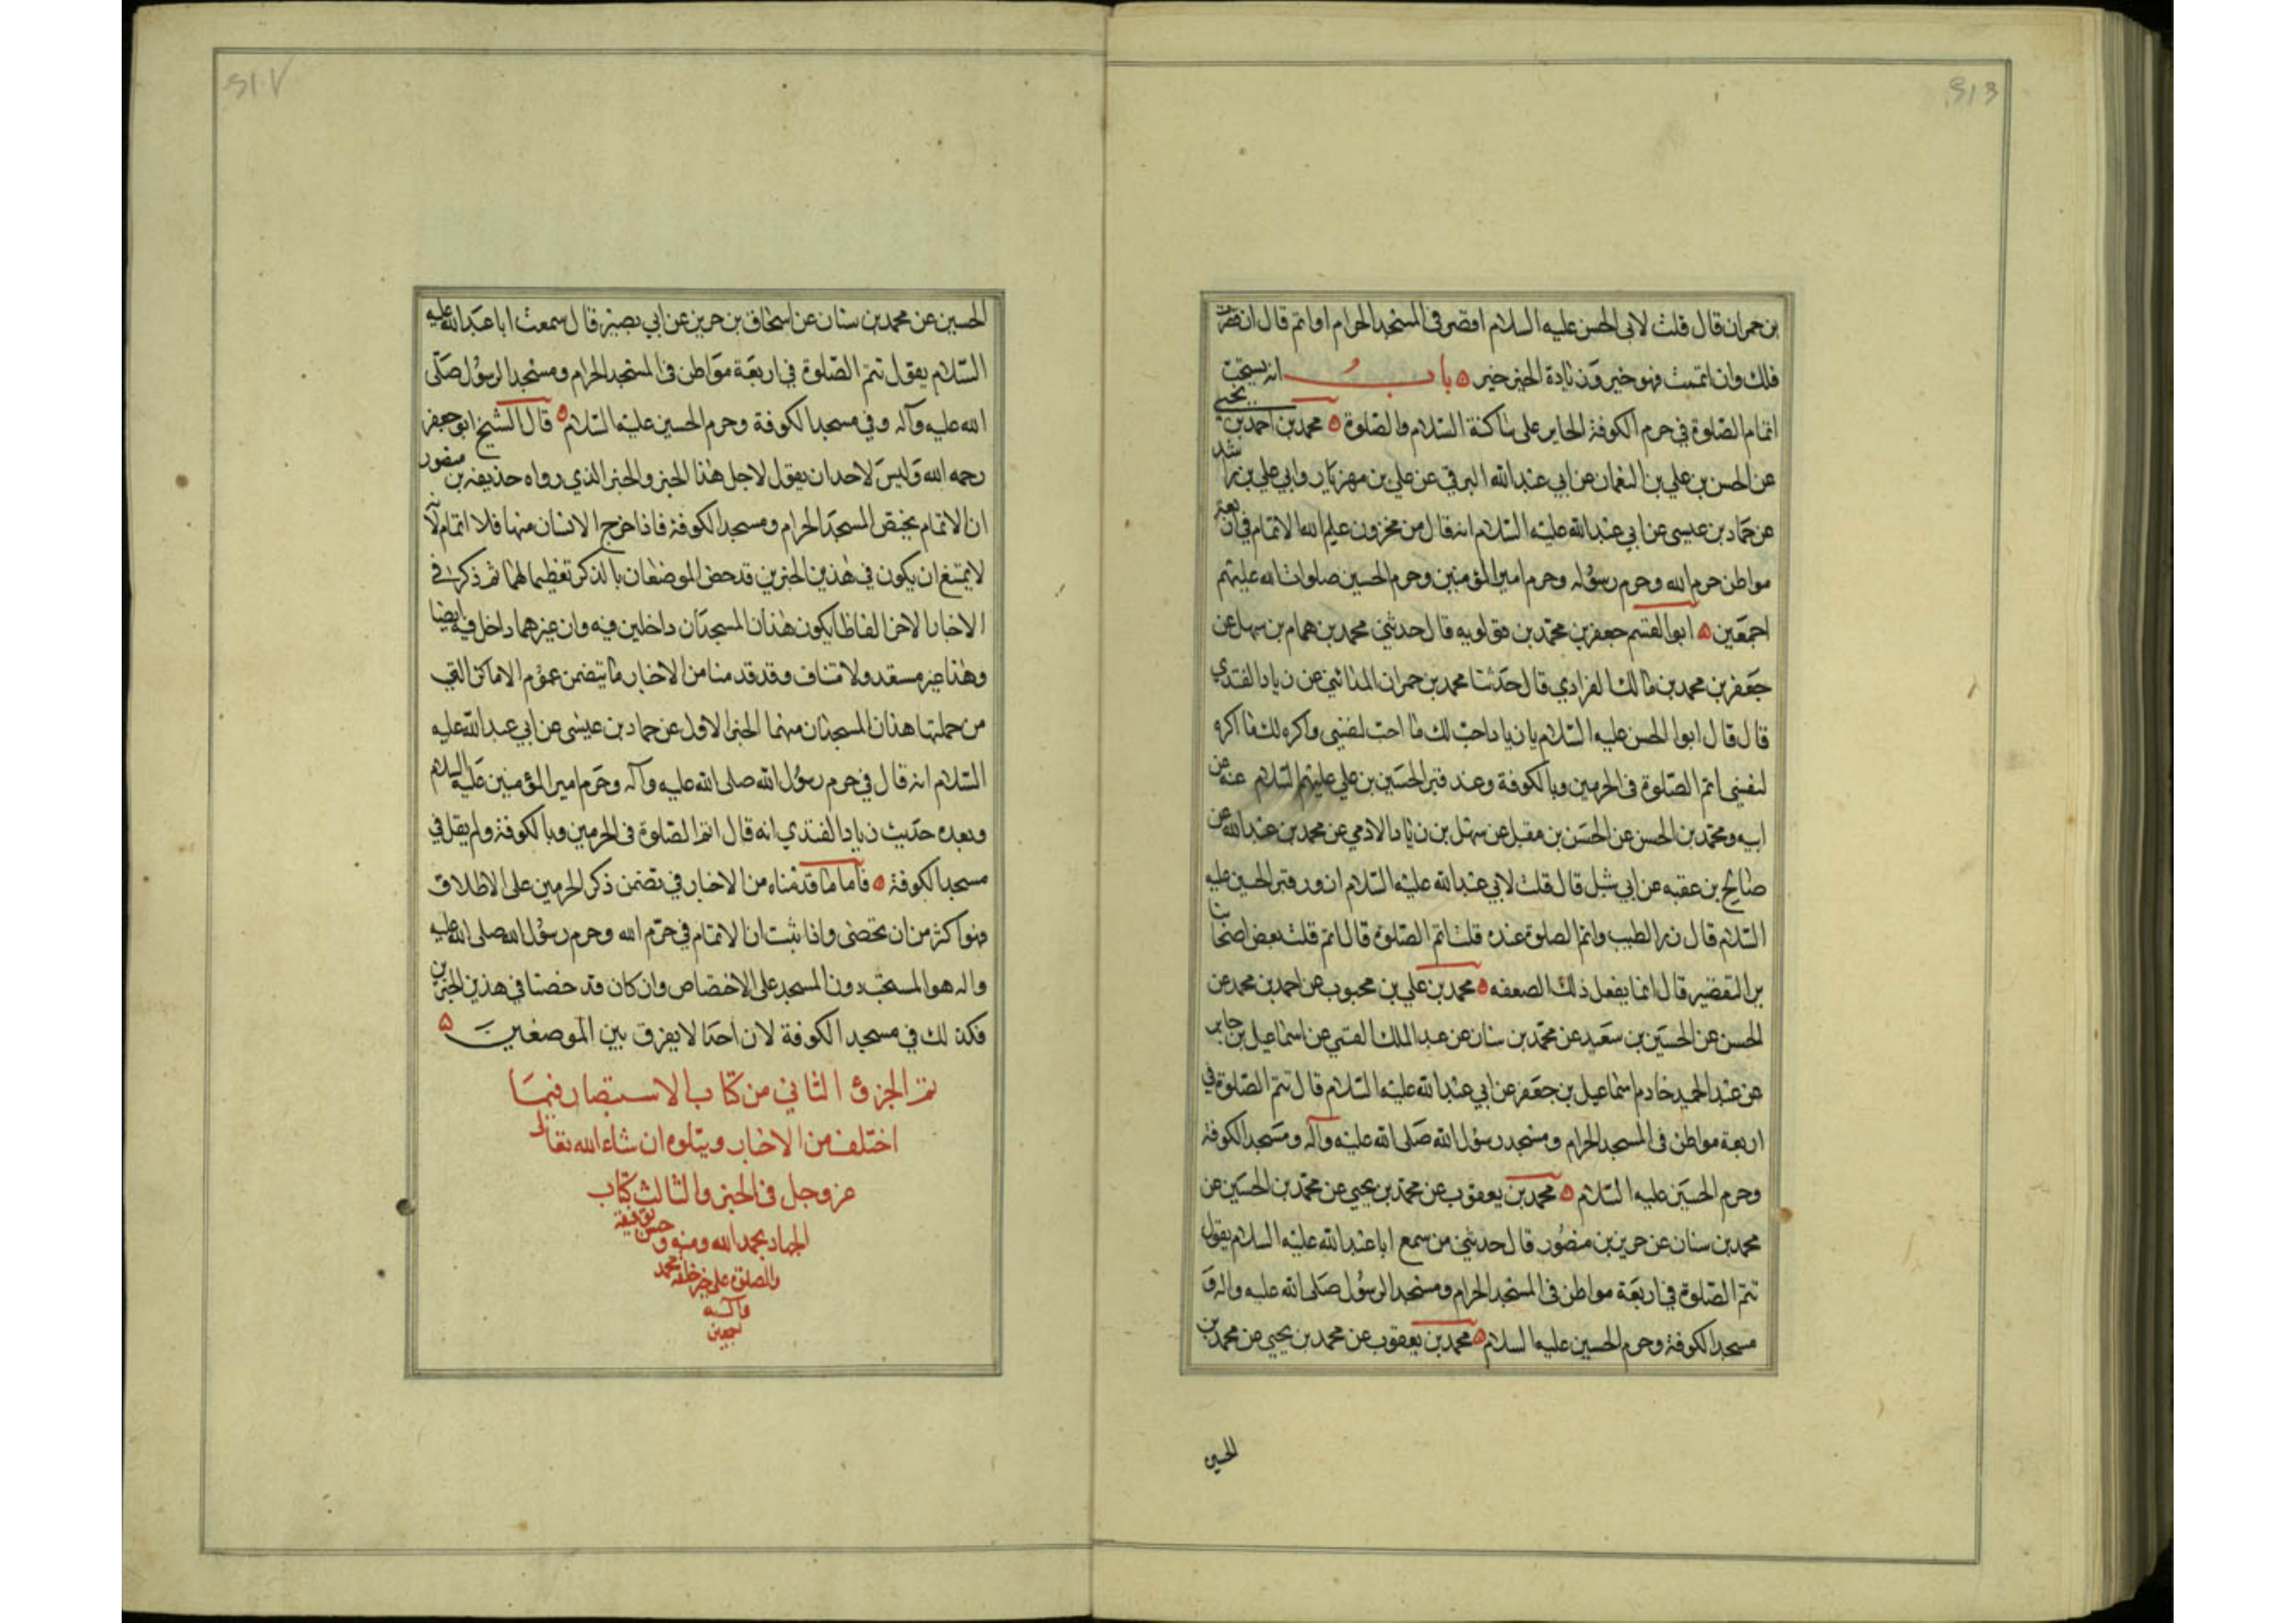 بن حمران قال قلت لابي الحسن عليه السلام اقصر في المسجد الحرام او اتم قال ان قصرت
فلك وان اتممت فهو خير وزيادة الخير خير ۵ باب انه يستحب
اتمام الصلوة في حرم الكوفة الحاير على ساكنه السلام والصلوة ۵ محمد بن احمد بن يحيى
عن الحسن بن علي بن النعمان عن ابي عبد الله البرقي عن علي بن مهزيار وابي علي بن راشد
عن حماد بن عيسى عن ابي عبد الله عليه السلام انه قال من مخزون علم الله الاتمام في اربعة
مواطن حرم الله وحرم رسوله وحرم امير المؤمنين وحرم الحسين صلوات الله عليهم
اجمعين ۵ ابو القسم جعفر بن محمد بن قولويه قال حدثني محمد بن همام بن سهل عن
جعفر بن محمد بن مالك الفزاري قال حدثنا محمد بن حمران المدائني عن زياد القندي
قال قال ابو الحسن عليه السلام يا زياد احب لك ما احب لنفسي واكره لك ما اكره
لنفسي اتم الصلوة في الحرمين وبالكوفة وعند قبر الحسين بن علي عليهم السلام عنه عن
ابيه ومحمد بن الحسن عن الحسن بن مقبل عن سهل بن زياد الادمي عن محمد بن عبد الله عن
صالح بن عقبه عن ابي شبل قال قلت لابي عبد الله عليه السلام ازور قبر الحسين عليه
السلام قال زر الطيب واتم الصلوة عنده قلت اتم الصلوة قال اتم قلت بعض اصحابنا
يرا التقصير قال انما يفعل ذلك الضعفه ۵ محمد بن علي بن محبوب عن احمد بن محمد عن
الحسن عن الحسين بن سعيد عن محمد بن سنان عن عبد الملك القمي عن اسماعيل بن جابر
عن عبد الحميد خادم اسماعيل بن جعفر عن ابي عبد الله عليه السلام قال تتم الصلوة في
اربعة مواطن في المسجد الحرام ومسجد رسول الله صلى الله عليه وآله ومسجد الكوفة
وحرم الحسين عليه السلام ۵ محمد بن يعقوب عن محمد بن يحيى عن محمد بن الحسين عن
محمد بن سنان عن حريز بن منصور قال حدثني من سمع ابا عبد الله عليه السلام يقول
تتم الصلوة في اربعة مواطن في المسجد الحرام ومسجد الرسول صلى الله عليه واله و
مسجد الكوفة وحرم الحسين عليه السلام ۵ محمد بن يعقوب عن محمد بن يحيى عن محمد بن
الحسين
الحسين عن محمد بن سنان عن اسحاق بن حريز عن ابي بصير قال سمعت ابا عبد الله عليه
السلام يقول تتم الصلوة في اربعة مواطن في المسجد الحرام ومسجد الرسول صلى
الله عليه وآله وفي مسجد الكوفة وحرم الحسين عليه السلام ۵ قال الشيخ ابو جعفر
رحمه الله وليس لاحد ان يقول لاجل هذا الخبر والخبر الذي رواه حذيفة بن منصور
ان الاتمام يختص المسجد الحرام ومسجد الكوفة فاذا خرج الانسان منها فلا اتمام لانه
لا يمتنع ان يكون في هذين الخبرين قد خص الموضعان بالذكر تعظيما لهما ثم ذكر في
الاخبار الاخر الفاظا يكون هذان المسجدان داخلين فيه وان غيرهما داخل فيه ايضا
وهذا غير مستعد ولا متناف وقد قدمنا من الاخبار ما يتضمن عموم الاماكن التي
من جملتها هذان المسجدان منهما الخبر الاول عن حماد بن عيسى عن ابي عبد الله عليه
السلام انه قال في حرم رسول الله صلى الله عليه وآله وحرم امير المؤمنين عليه السلام
وبعده حديث زياد القندي انه قال اتم الصلوة في الحرمين وبالكوفة ولم يقل في
مسجد الكوفة ۵ فاما ما قدمناه من الاخبار في تضمن ذكر الحرمين على الاطلاق
فهو اكثر من ان تحصى واذا ثبت ان الاتمام في حرم الله وحرم رسول الله صلى الله عليه
واله هو المستحب دون المسجد على الاختصاص وان كان قد خصتا في هذين الخبرين
فكذلك في مسجد الكوفة لان احدا لا يفرق بين الموضعين ۵
تم الجزؤ الثاني من كتاب الاستبصار فيما
اختلف من الاخبار ويتلوه ان شاء الله تعالى
عز وجل في الجزو الثالث كتاب
الجهاد بحمد الله ومنه وحسن توفيقه
والصلوة على خير خلقه محمد
وآله
اجمعين